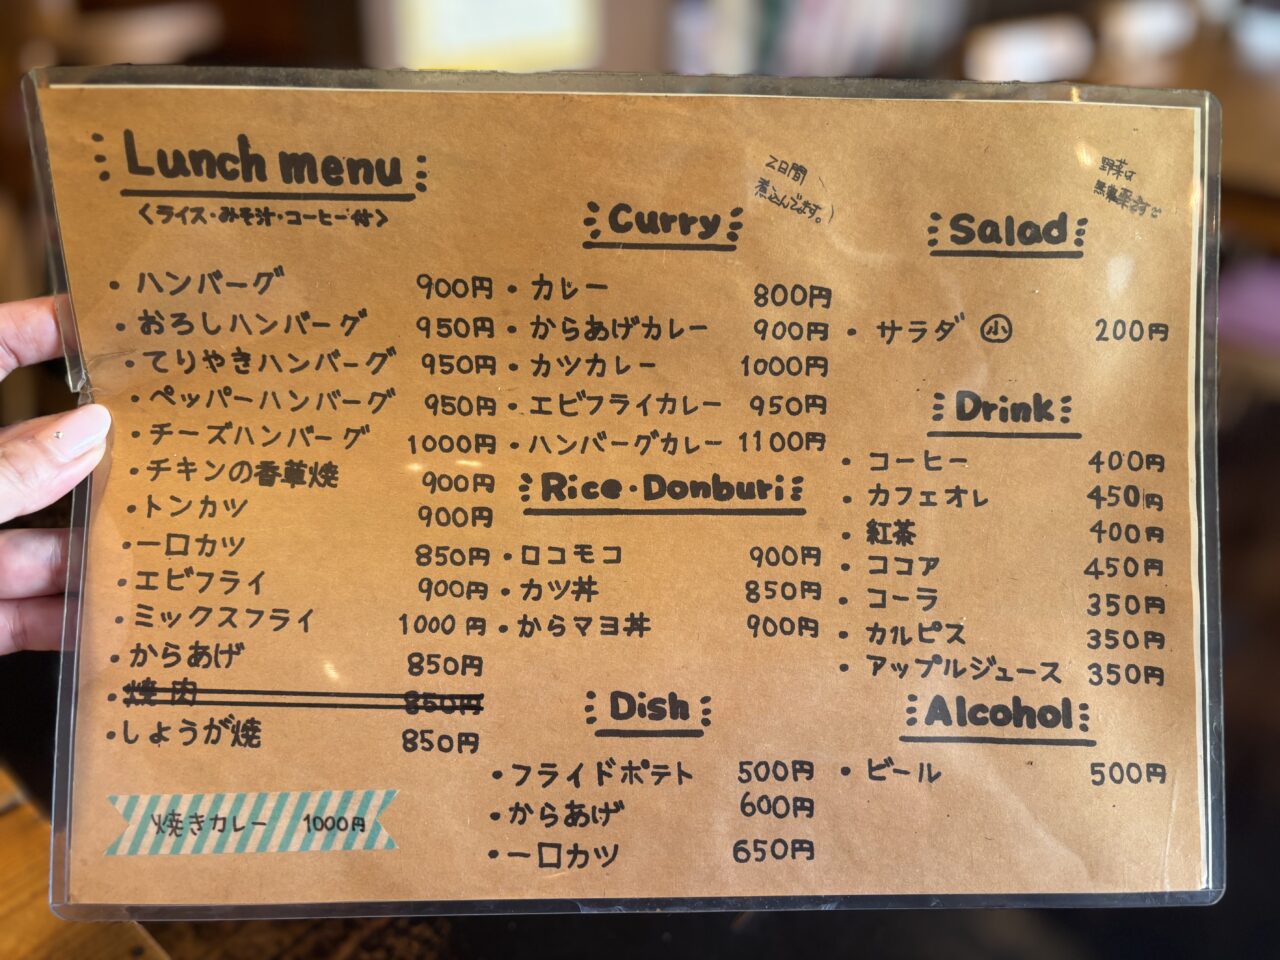 Lunch menu
<ライス・みそ汁・コーヒー付>
・ハンバーグ 900円
・おろしハンバーグ 950円
・てりやきハンバーグ 950円
・ペッパーハンバーグ 950円
・チーズハンバーグ 1000円
・チキンの香草焼 900円
・トンカツ 900円
・一口カツ 850円
・エビフライ 900円
・ミックスフライ 1000円
・からあげ 850円
・焼肉 850円
・しょうが焼 850円
焼きカレー 1000円
Curry
2日間
煮込んでます。
・カレー 800円
・からあげカレー 900円
・カツカレー 1000円
・エビフライカレー 950円
・ハンバーグカレー 1100円
Rice・Donburi
・ロコモコ 900円
・カツ丼 850円
・からマヨ丼 900円
Dish
・フライドポテト 500円
・からあげ 600円
・一口カツ 650円
Salad
野菜は
・サラダ 小 200円
Drink
・コーヒー 400円
・カフェオレ 450円
・紅茶 400円
・ココア 450円
・コーラ 350円
・カルピス 350円
・アップルジュース 350円
Alcohol
・ビール 500円